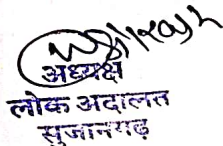 अध्यक्ष
लोक अदालत
सुजानगढ़